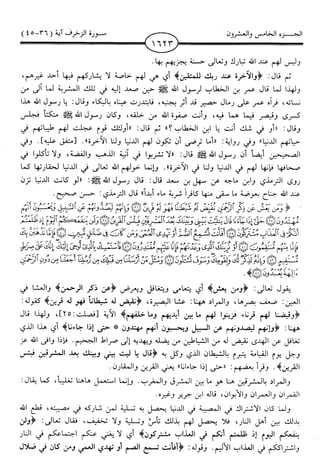 الجزء الخامس والعشرون
١٦٢٣
سورة الزخرف آية (٣٦-٤٥)
وليس لهم عند الله تبارك وتعالى حسنة يجزيهم بها.
ثم قال: ﴿والآخرة عند ربك للمتقين﴾ أي هي لهم خاصة لا يشاركهم فيها أحد غيرهم،
ولهذا لما قال عمر بن الخطاب لرسول الله ﷺ حين صعد إليه في تلك المشربة لما آلى من
نسائه، فرآه عمر على رمال حصير قد أثر بجنبه، فابتدرت عيناه بالبكاء وقال: يا رسول الله هذا
كسرى وقيصر فيما هما فيه، وأنت صفوة الله من خلقه، وكان رسول الله ﷺ متكئاً فجلس
وقال: «أو في شك أنت يا ابن الخطاب؟» ثم قال: «أولئك قوم عجلت لهم طيباتهم في
حياتهم الدنيا» وفي رواية: «أما ترضى أن تكون لهم الدنيا ولنا الآخرة». [متفق عليه]. وفي
الصحيحين أيضاً أن رسول الله ﷺ قال: «لا تشربوا في آنية الذهب والفضة، ولا تأكلوا في
صحافها فإنها لهم في الدنيا ولنا في الآخرة». وإنما خولهم الله تعالى في الدنيا لحقارتها كما
روى الترمذي وابن ماجه عن سهل بن سعد، قال: قال رسول الله ﷺ: «لو كانت الدنيا تزن
عند الله جناح بعوضة ما سقى منها كافراً شربة ماء أبداً» قال الترمذي: حسن صحيح.
يقول تعالى: ﴿ومن يعش﴾ أي يتعامى ويتغافل ويعرض ﴿عن ذكر الرحمن﴾ والعشا في
العين: ضعف بصرها، والمراد ههنا: عشا البصيرة، ﴿نقيض له شيطاناً فهو له قرين﴾ كقوله:
﴿وقيضنا لهم قرناء فزينوا لهم ما بين أيديهم وما خلفهم﴾ الآية [فصلت: ٢٥]، ولهذا قال
ههنا: ﴿وإنهم ليصدونهم عن السبيل ويحسبون أنهم مهتدون * حتى إذا جاءنا﴾ أي هذا الذي
تغافل عن الهدى نقيض له من الشياطين من يضله ويهديه إلى صراط الجحيم. فإذا وافى الله عز
وجل يوم القيامة يتبرم بالشيطان الذي وكل به ﴿قال يا ليت بيني وبينك بعد المشرقين فبئس
القرين﴾. وقرأ بعضهم: «حتى إذا جاءانا» يعني القرين والمقارن.
والمراد بالمشرقين هنا هو ما بين المشرق والمغرب. وإنما استعمل هاهنا تغليباً، كما يقال:
القمران والعمران والأبوان، قاله ابن جرير وغيره.
ولما كان الاشتراك في المصيبة في الدنيا يحصل به تسلية لمن شاركه في مصيبته، قطع الله
بذلك بين أهل النار، فلا يحصل لهم بذلك تأس وتسلية ولا تخفيف، فقال تعالى: ﴿ولن
ينفعكم اليوم إذ ظلمتم أنكم في العذاب مشتركون﴾ أي لا يغني عنكم اجتماعكم في النار
واشتراككم في العذاب الأليم. وقوله: ﴿أفأنت تسمع الصم أو تهدي العمي ومن كان في ضلال